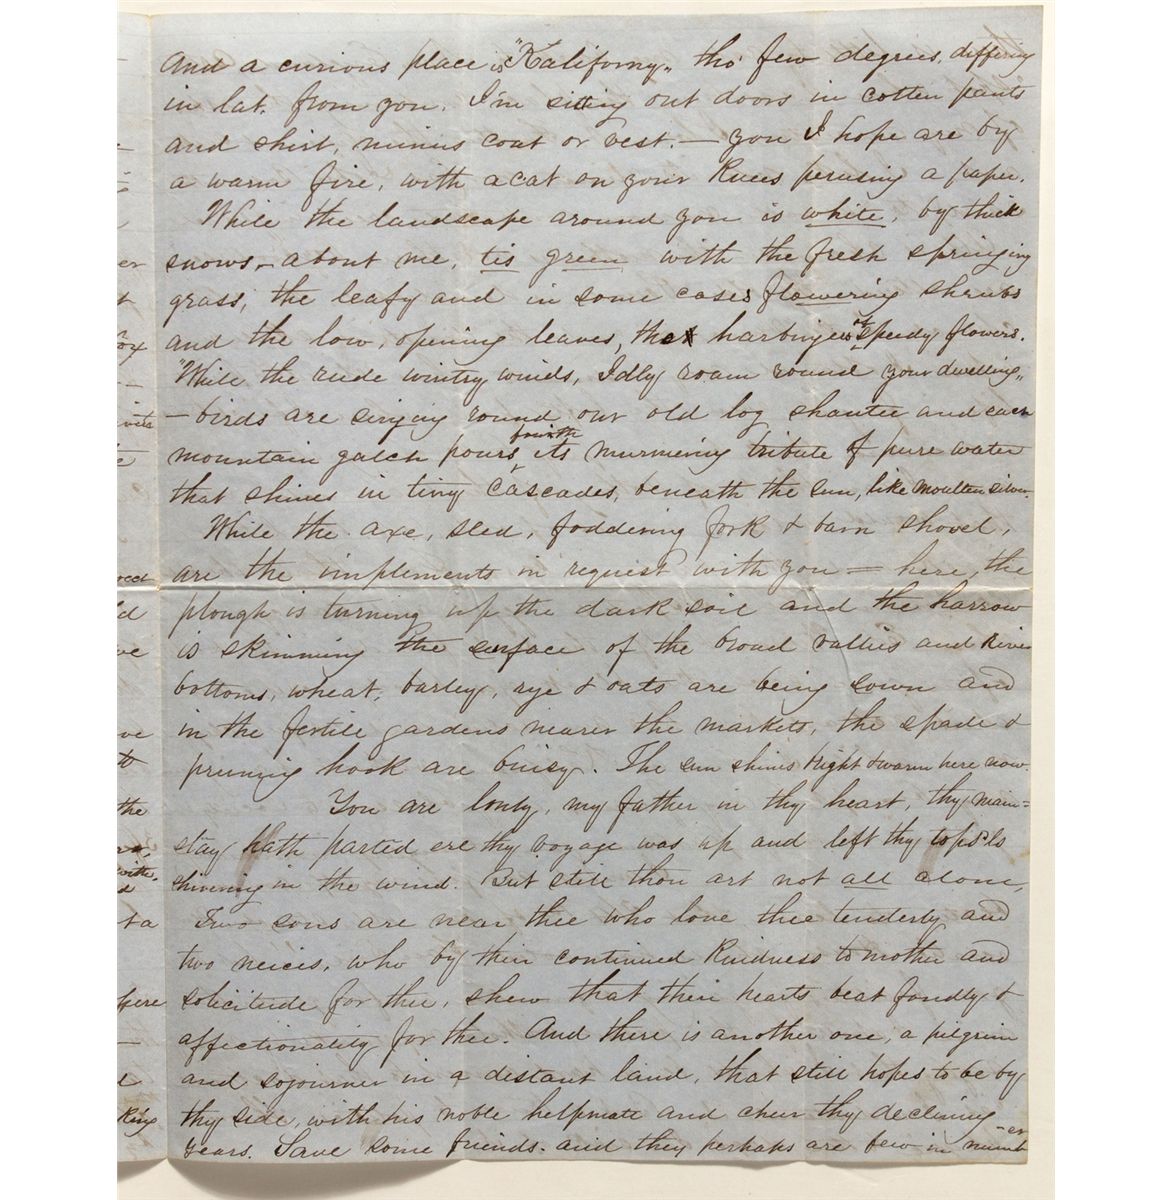 And a curious place is "Kaliforny" tho' few degrees, differing
in lat. from you. I'm sitting out doors in cotten pants
and shirt, minus coat or vest. — you I hope are by
a warm fire, with a cat on your Knees perusing a paper.
While the landscape around you is white, by thick
snows, - about me, tis green, with the fresh springing
grass, the leafy and in some cases flowering shrubs
and the low, opening leaves, the harbingers of speedy flowers.
"While the rude wintry winds, Idly roam round your dwelling"
— birds are singing round our old log shantee and each
mountain gulch pours fourth its murmering tribute of pure water
that shines in tiny cascades, beneath the sun, like moulten silver.
While the axe, sled, foddering fork & barn shovel,
are the implements in request with you = here, the
plough is turning up the dark soil and the harrow
is skimming the surface of the broad vallies and River
bottoms, wheat, barley, rye & oats are being sown and
in the fertile gardens nearer the markets, the spade &
prunning hook are buisy. The sun shines bright & warm here now.
You are lonly, my father in thy heart, thy main=
stay hath parted ere thy voyage was up and left thy topsls
shivering in the wind. But still thou art not all alone,
Two sons are near thee who love thee tenderly and
two neices, who by their continued Kindness to mother and
solicitude for thee, shew that their hearts beat fondly &
affectionality for thee. And there is another one, a pilgrim
and sojourner in a distant land, that still hopes to be by
thy side, with his noble helpmate and cheer thy declining
years. Save some friends. and they perhaps are few in number
er
ox
rect
ld
ve
ve
to
the
with,
d
t a
here
King